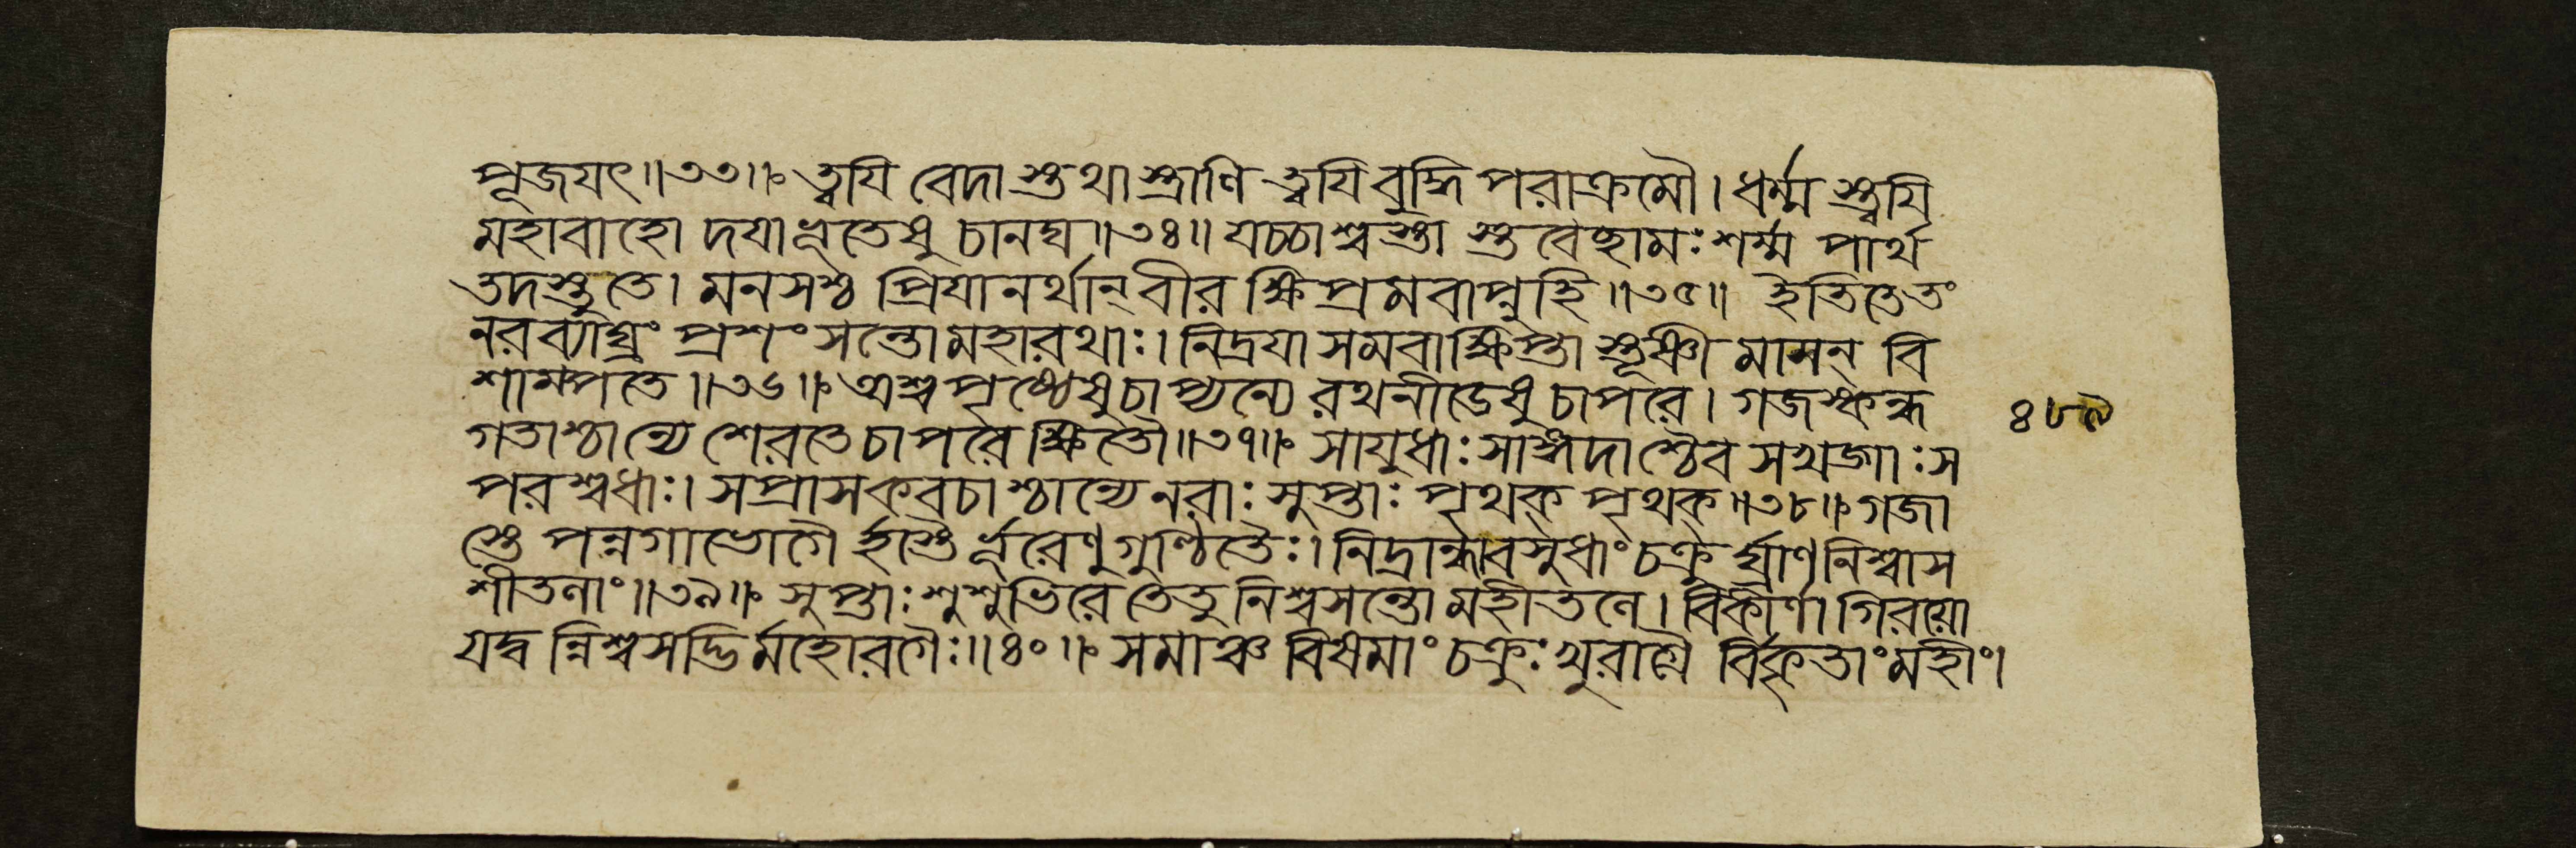 পূজযৎ॥৩৩॥ ত্বযি বেদা স্তথাস্ত্রাণি ত্বযি বুদ্ধি পরাক্রমৌ। ধর্ম্ম স্ত্বযি
মহাবাহো দযা ভূতেষু চানঘ॥৩৪॥ যচ্চাশ্বস্তা স্তবেচ্ছামঃ শর্ম্ম পার্থ
তদস্তুতে। মনসশ্চ প্রিযানর্থান্ বীর ক্ষিপ্রমবাপ্নুহি॥৩৫॥ ইতি তে তং
নরব্যাঘ্রং প্রশংসন্তো মহারথাঃ। নিদ্রযা সমবাক্ষিপ্তা স্তূষ্ণী মাসন্ বি
শাম্পতে॥৩৬॥ অশ্বপৃষ্ঠেষু চাপ্যন্যে রথনীডেষু চাপরে। গজস্কন্ধ
গতাশ্চান্যে শেরতে চাপরে ক্ষিতৌ॥৩৭॥ সাযুধাঃ সাঙ্গদাশ্চৈব সখড্গাঃ স
পরশ্বধাঃ। সপ্রাসকবচাশ্চান্যে নরাঃ সুপ্তাঃ পৃথক্ পৃথক্॥৩৮॥ গজা
স্তে পন্নগাভোগৈ র্হস্তৈ র্ভূরেণুগুণ্ঠিতৈঃ। নিদ্রান্ধা বসুধাং চক্রু র্ঘ্রাণনিশ্বাস
শীতলাং॥৩৯॥ সুপ্তাঃ শুশুভিরে তেতু নিশ্বসন্তো মহীতলে। বিকীর্ণা গিরয়ো
যদ্ব ন্নিশ্বসদ্ভির্মহোরগৈঃ॥৪০॥ সমাঞ্চ বিষমাং চক্রুঃ খুরাগ্রৈ র্বিকৃতাং মহীং।
৪৮৯